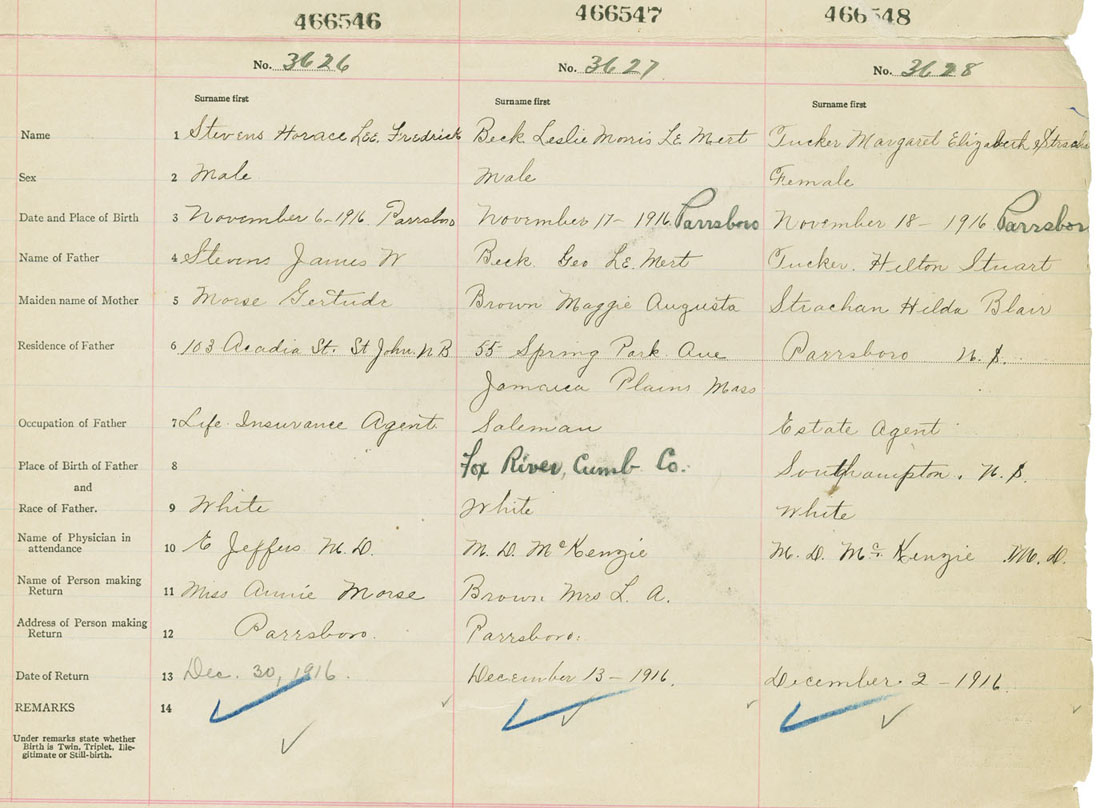 466546 466547 466548
No. 3626 No. 3627 No. 3628
Surname first Surname first Surname first
Name 1 Stevens Horace LEE Fredrick Beck Leslie Morris LE Mert Tucker Margaret Elizabeth Stracha
Sex 2 Male Male Female
Date and Place of Birth 3 November 6-1916 Parrsboro November 17-1916 Parrsboro November 18-1916 Parrsbor
Name of Father 4 Stevens James W Beck. Geo LE. Mert Tucker. Hilton Stuart
Maiden name of Mother 5 Morse Gertude Brown Maggie Augusta Strachan Hilda Blair
Residence of Father 6 103 Acadia St. St John. N B 55 Spring Park Ave Parrsboro N. S.
Jamaica Plains Mass
Occupation of Father 7 Life Insurance Agent Saleman Estate Agent
Place of Birth of Father 8 Fox River, Cumb. Co. Southampton. N. S.
and
Race of Father. 9 White White White
Name of Physician in
attendance 10 E Jeffers M. D. M. D. McKenzie M. D. McKenzie M. D.
Name of Person making
Return 11 Miss Annie Morse Brown Mrs L. A.
Address of Person making
Return 12 Parrsboro. Parrsboro.
Date of Return 13 Dec. 30, 1916. December 13-1916. December 2-1916
REMARKS 14
Under remarks state whether
Birth is Twin, Triplet, Ille-
gitimate or Still-birth.